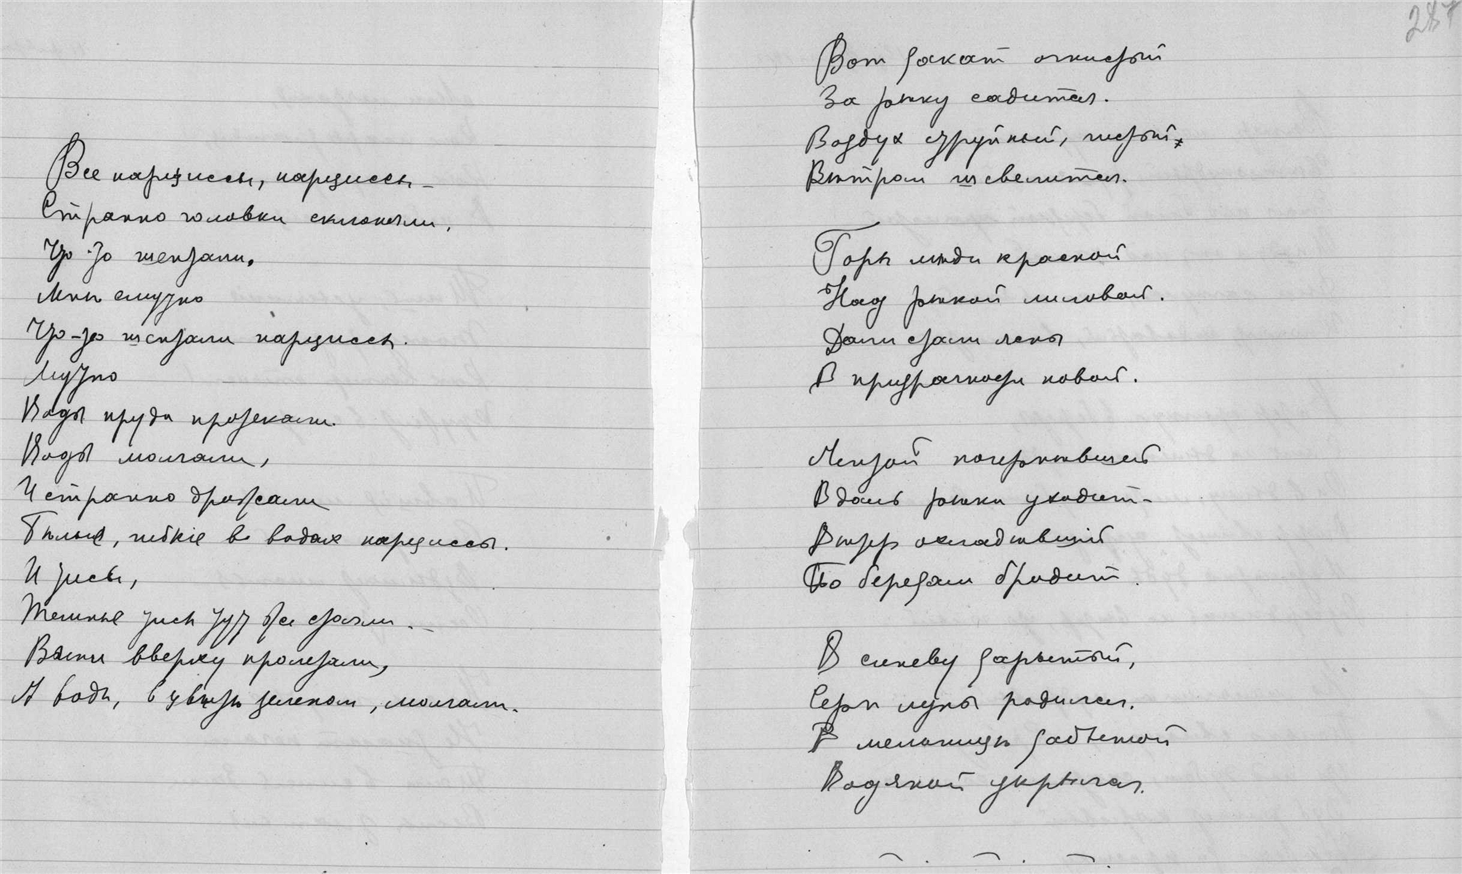 Все нарциссы, нарциссы –
Странно головки склоняли,
Что-то шептали,
Мнѣ смутно
Что-то шептали нарциссы.
Мутно
Воды пруда протекали
Воды молчали,
И странно дрожали
Бѣлые, гибкіе в водах нарциссы.
И тисы,
Темные тисы тут же стояли. –
Вѣтки вверху пролетали,
А воды, в цвѣту зеленом, молчали.
287
Вот закат огнистый
За рѣку садится.
Воздух струйный, чистый
Вѣтром шевелится.
Горы мѣди красной
Над рѣкой лиловой.
Дали стали ясны
В призрачности новой.
Лентой почернѣвшей
Вдаль рѣка уходит –
Вѣтр охладѣвшій
По берегам бродит.
В синеву зарытый,
Серп луны родился.
В мельницѣ забытой
Водяной укрылся.